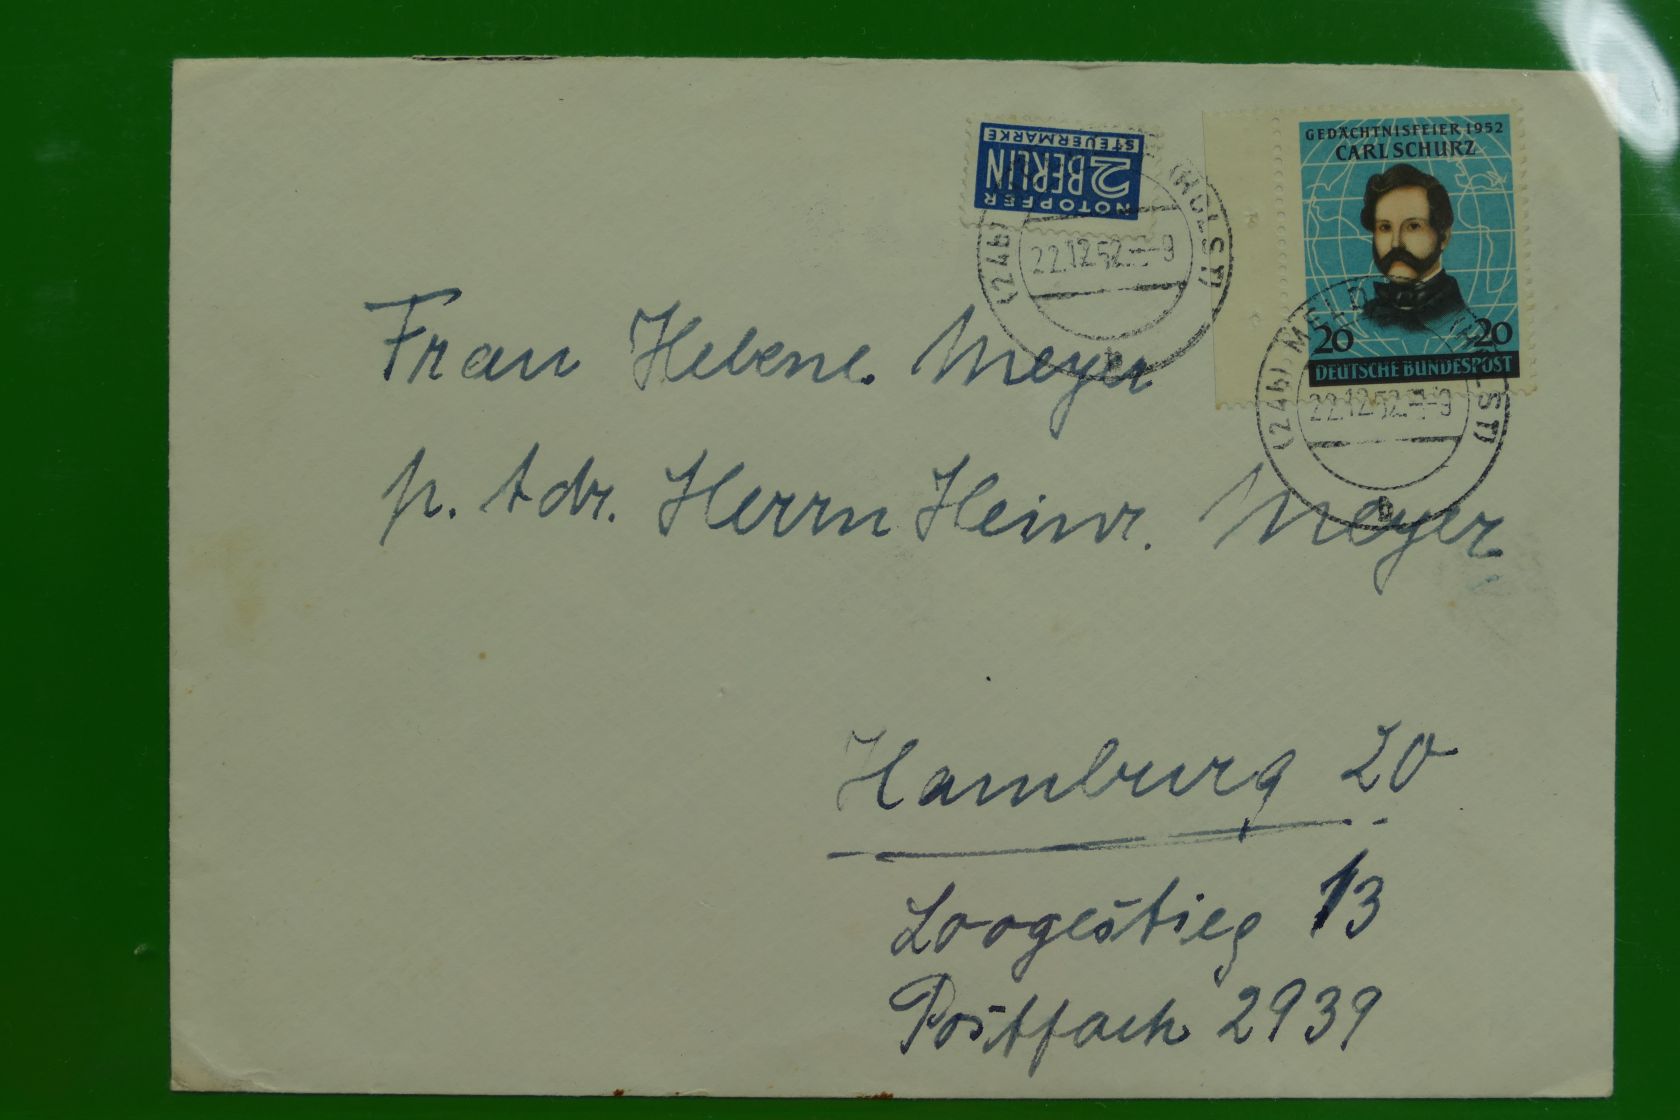 NOTOPFER
2 BERLIN
STEUERMARKE
GEDÄCHTNISFEIER 1952
CARL SCHURZ
20 20
DEUTSCHE BUNDESPOST
(24b) (HOLST)
22.12.52
b
(24b) MELDORF (HOLST)
22.12.52
b
Frau Helene Meyer
p. Adr. Herrn Heinr. Meyer
Hamburg 20
Loogestieg 13
Postfach 2939